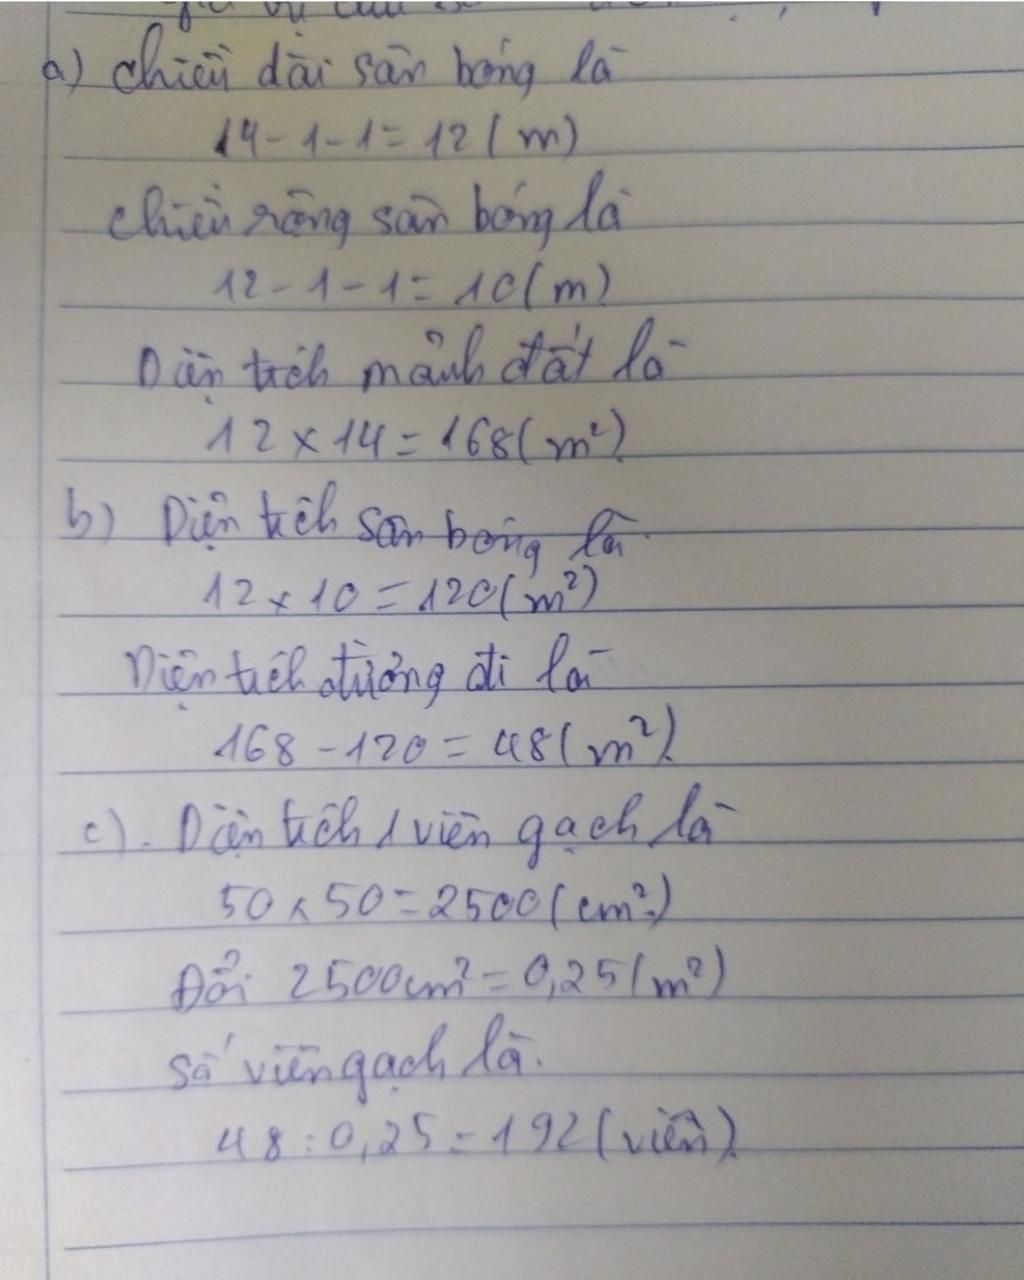 a) Chiều dài sân bóng là
14 - 1 - 1 = 12 (m)
chiều rộng sân bóng là
12 - 1 - 1 = 10 (m)
Diện tích mảnh đất là
12 x 14 = 168 (m²)
b) Diện tích sân bóng là
12 x 10 = 120 (m²)
Diện tích đường đi là
168 - 120 = 48 (m²)
c). Diện tích 1 viên gạch là
50 x 50 = 2500 (cm²)
Đổi 2500 cm² = 0,25 (m²)
số viên gạch là.
48 : 0,25 = 192 (viên)